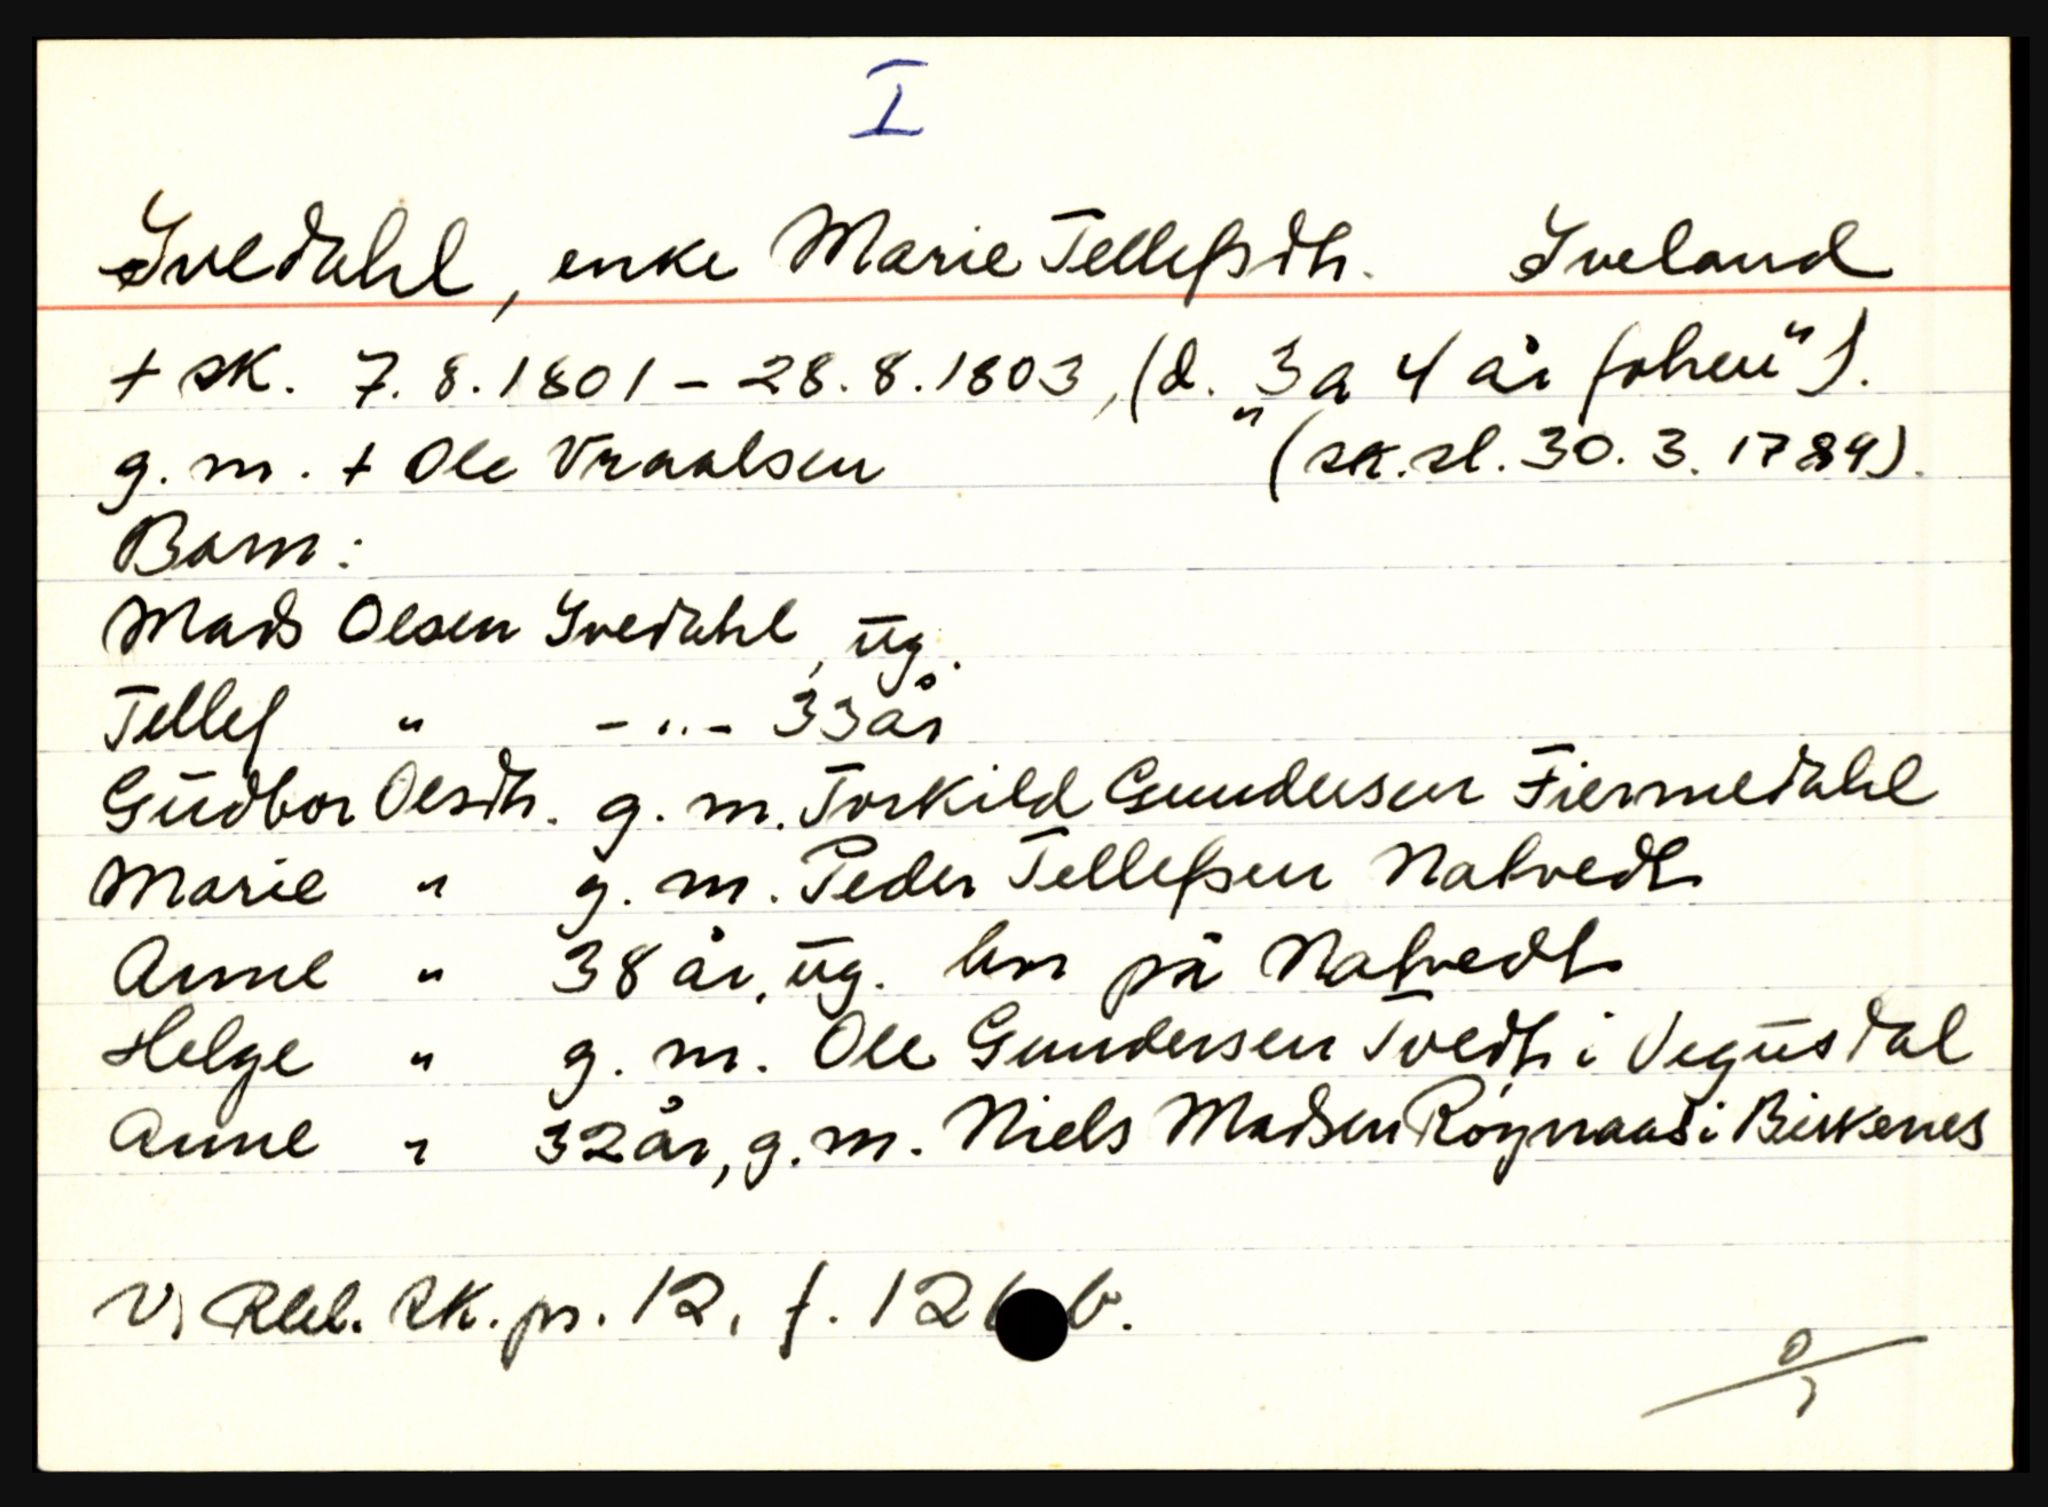 I
Ivedahl, enke Marie Tellefsdtr. Iveland
+ sk. 7.8.1801 - 28.8.1803, (d. "3 a 4 år forhen").
g. m. + Ole Vraalsen (sk.sl. 30. 3. 1789).
Barn:
Mads Olsen Ivedahl, ug.
Tellef " - " - 33 år
Gudbor Olsdtr. g. m. Torkild Gundersen Fiermedahl
Marie " g. m. Peder Tellefsen Natvedt
Anne " 38 år, ug. bor på Natvedt
Helge " g. m. Ole Gundersen Tvedt i Vegusdal
Anne " 32 år, g. m. Niels Madsen Røynaas i Birkenes
V. Rbl. sk. pr. 12, f. 126 b.